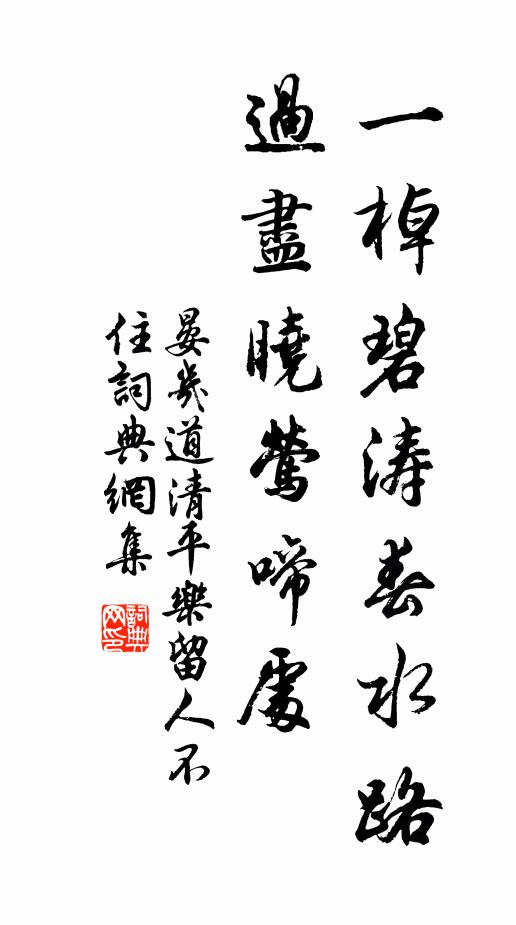 一棹碧濤春水路
過盡曉鶯啼處
晏幾道清平樂留人不
住詞典網集
詞典網印